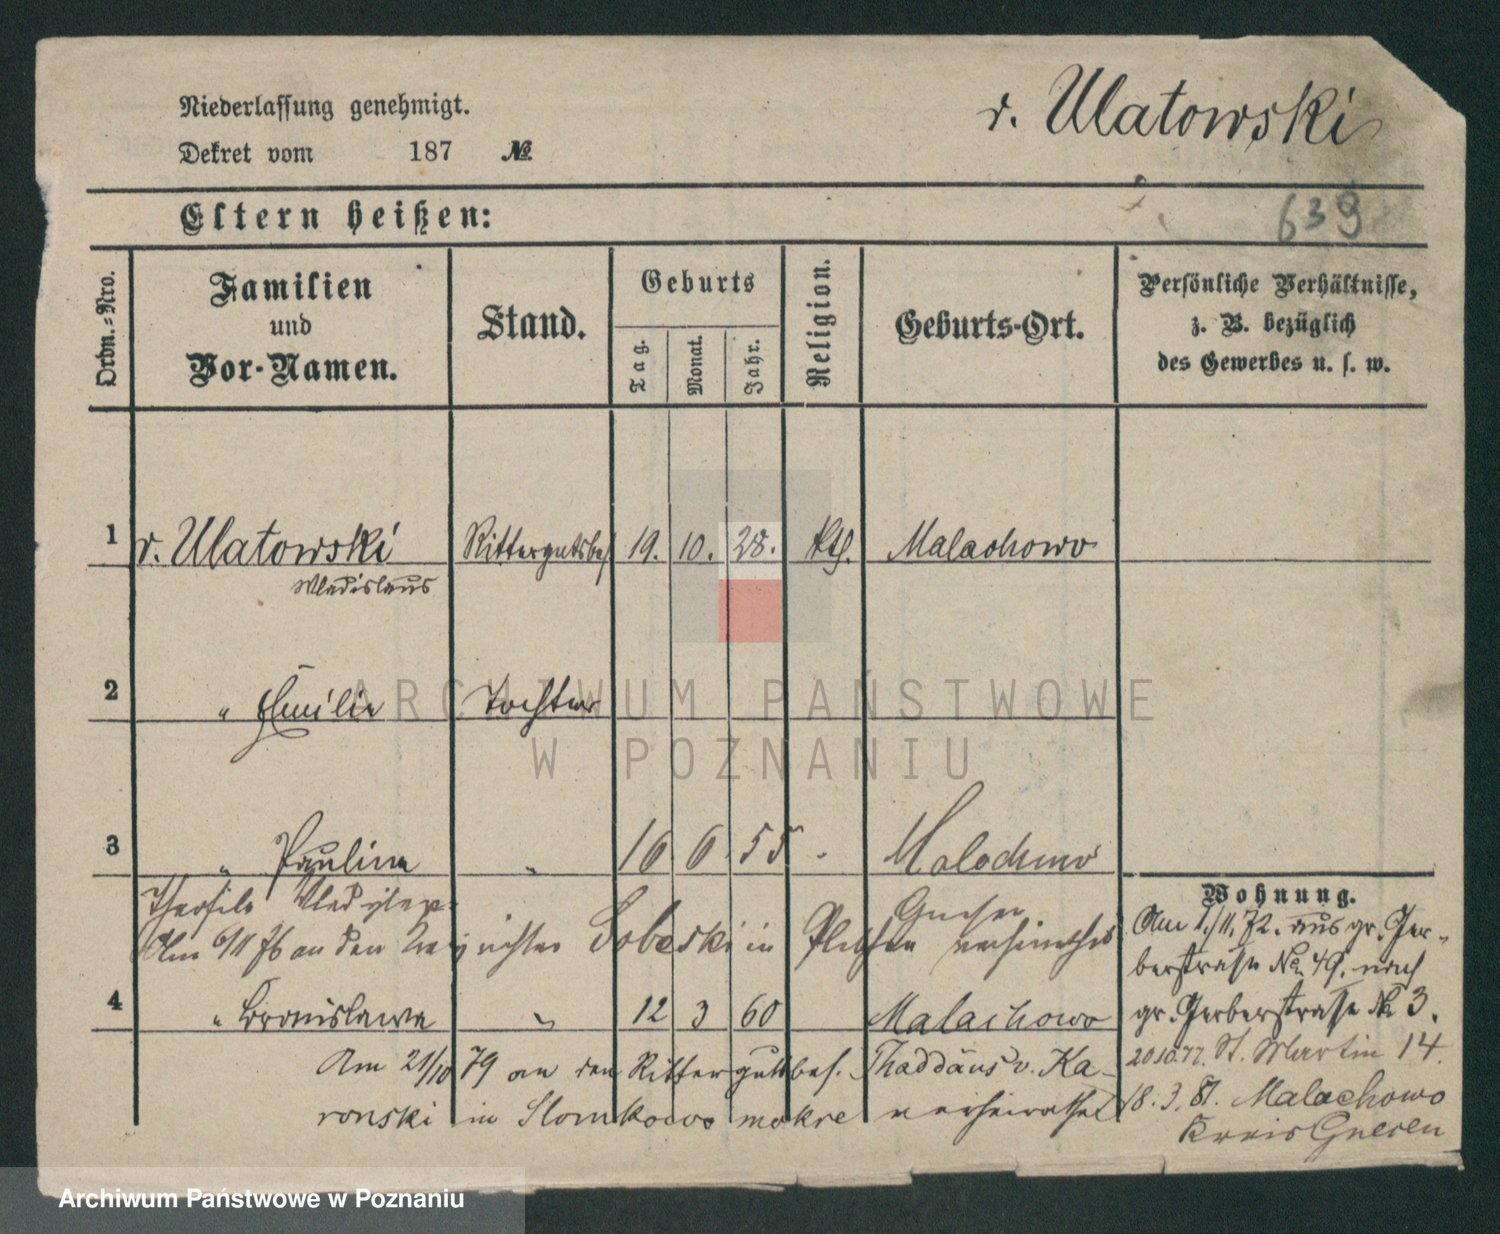 v. Ulatowski
Niederlassung genehmigt.
Dekret vom 187 №
Eltern heißen:
639
Ordn.-Nro.
Familien
und
Vor-Namen.
Stand.
Geburts
Tag.
Monat.
Jahr.
Religion.
Geburts-Ort.
Persönliche Verhältnisse,
z. B. bezüglich
des Gewerbes u. s. w.
1 v. Ulatowski Rittergutsbes 19. 10. 28. kth. Malachowo
Wladislaus
2 " Emilie Tochter
3 " Pauline " 16 6 55 Malachowo
Gnesen
Am 6/11 76 an den Sobeski in Pleschen verheirathet
4 " Bronislawa " 12 3 60 Malachowo
Am 21/10 79 an den Rittergutsbes. Thaddäus v. Ka-
ronski in Slomkowo mokre verheirathet
Wohnung.
Am 1./11. 72. aus gr. Ger-
berstraße No. 49. nach
gr. Gerberstraße No 3.
20.10.77. St. Martin 14.
18. 3. 81. Malachowo
Kreis Gnesen
ARCHIWUM PAŃSTWOWE
W POZNANIU
Archiwum Państwowe w Poznaniu